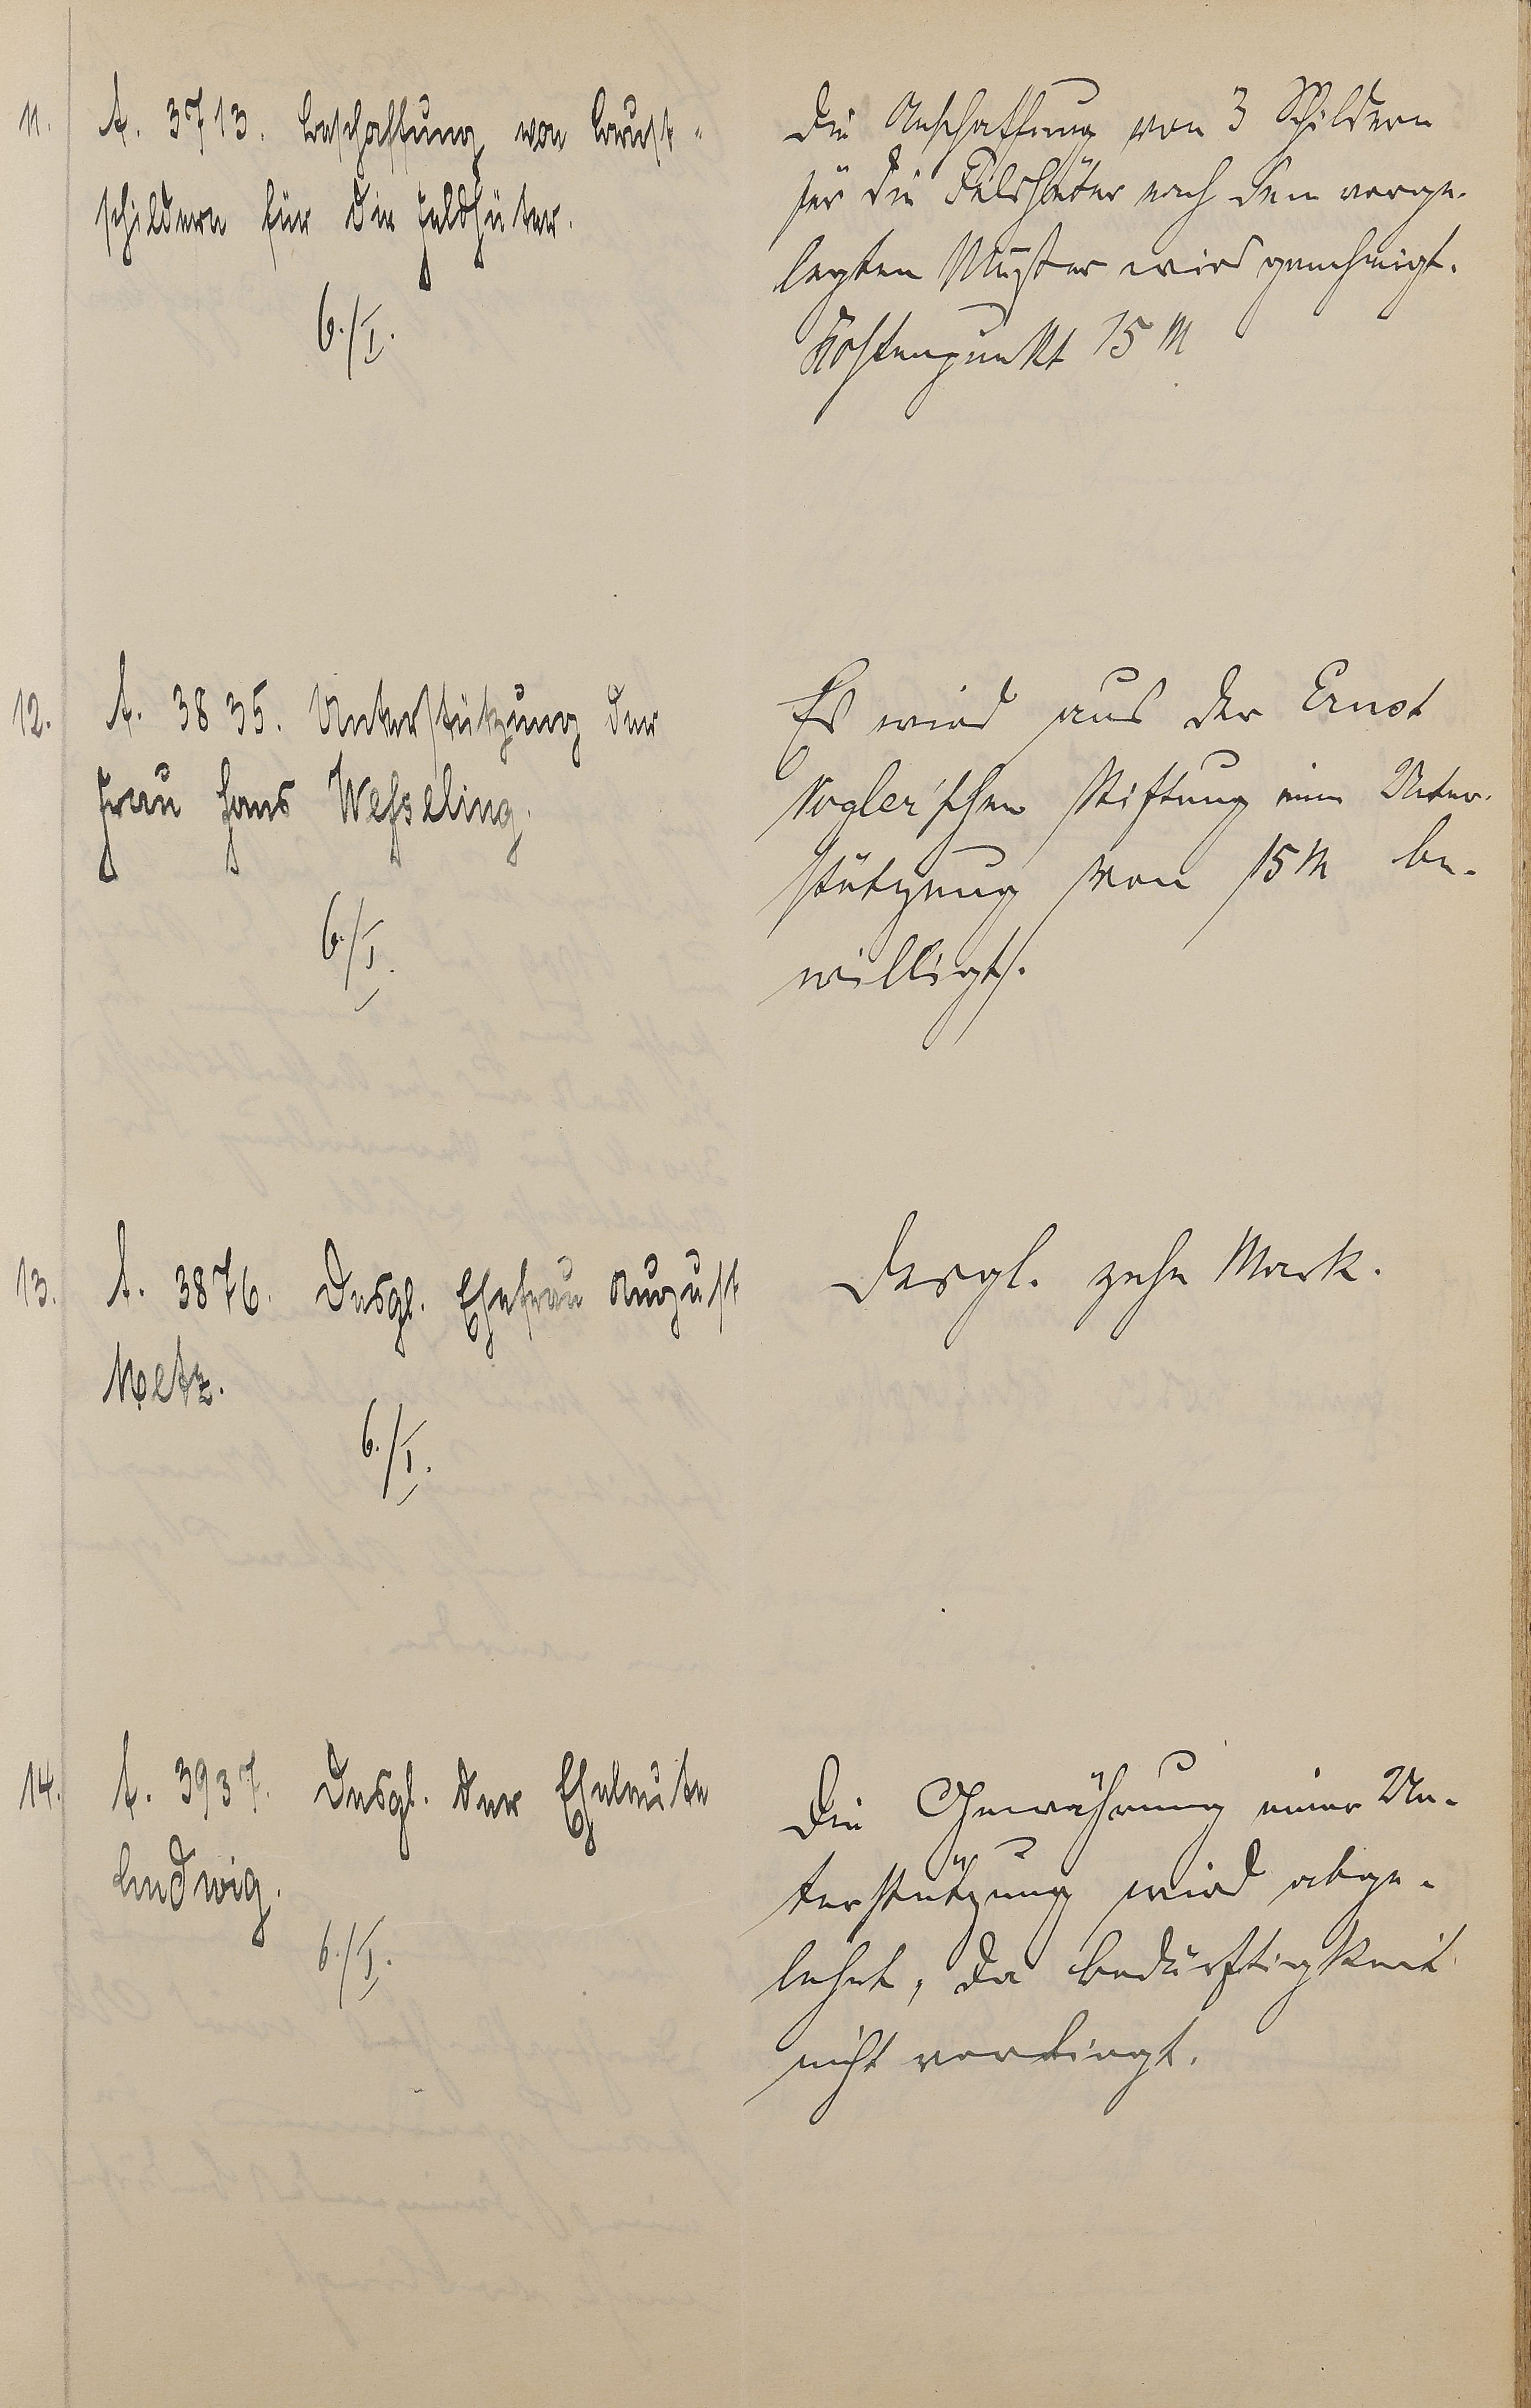 11.
A. 3713. Beschaffung von Brust-
schildern für die Feldhüter.
6./I.
Die Anschaffung von 3 Schildern
für die Feldhüter nach dem vorge-
legten Muster wird genehmigt.
Kostenpunkt 15 M
12.
A. 3835. Unterstützung der
Frau Hans Wesseling.
6./I.
Es wird aus der Ernst
Vogler'schen Stiftung eine Unter-
stützung von 15 M be-
willigt.
13.
A. 3876. Desgl. Ehefrau August
Metz.
6./I.
Desgl. zehn Mark.
14.
A. 3937. Desgl. der Eheleute
Ludwig.
6./I.
Die Gewährung einer Un-
terstützung wird abge-
lehnt, da Bedürftigkeit
nicht vorliegt.